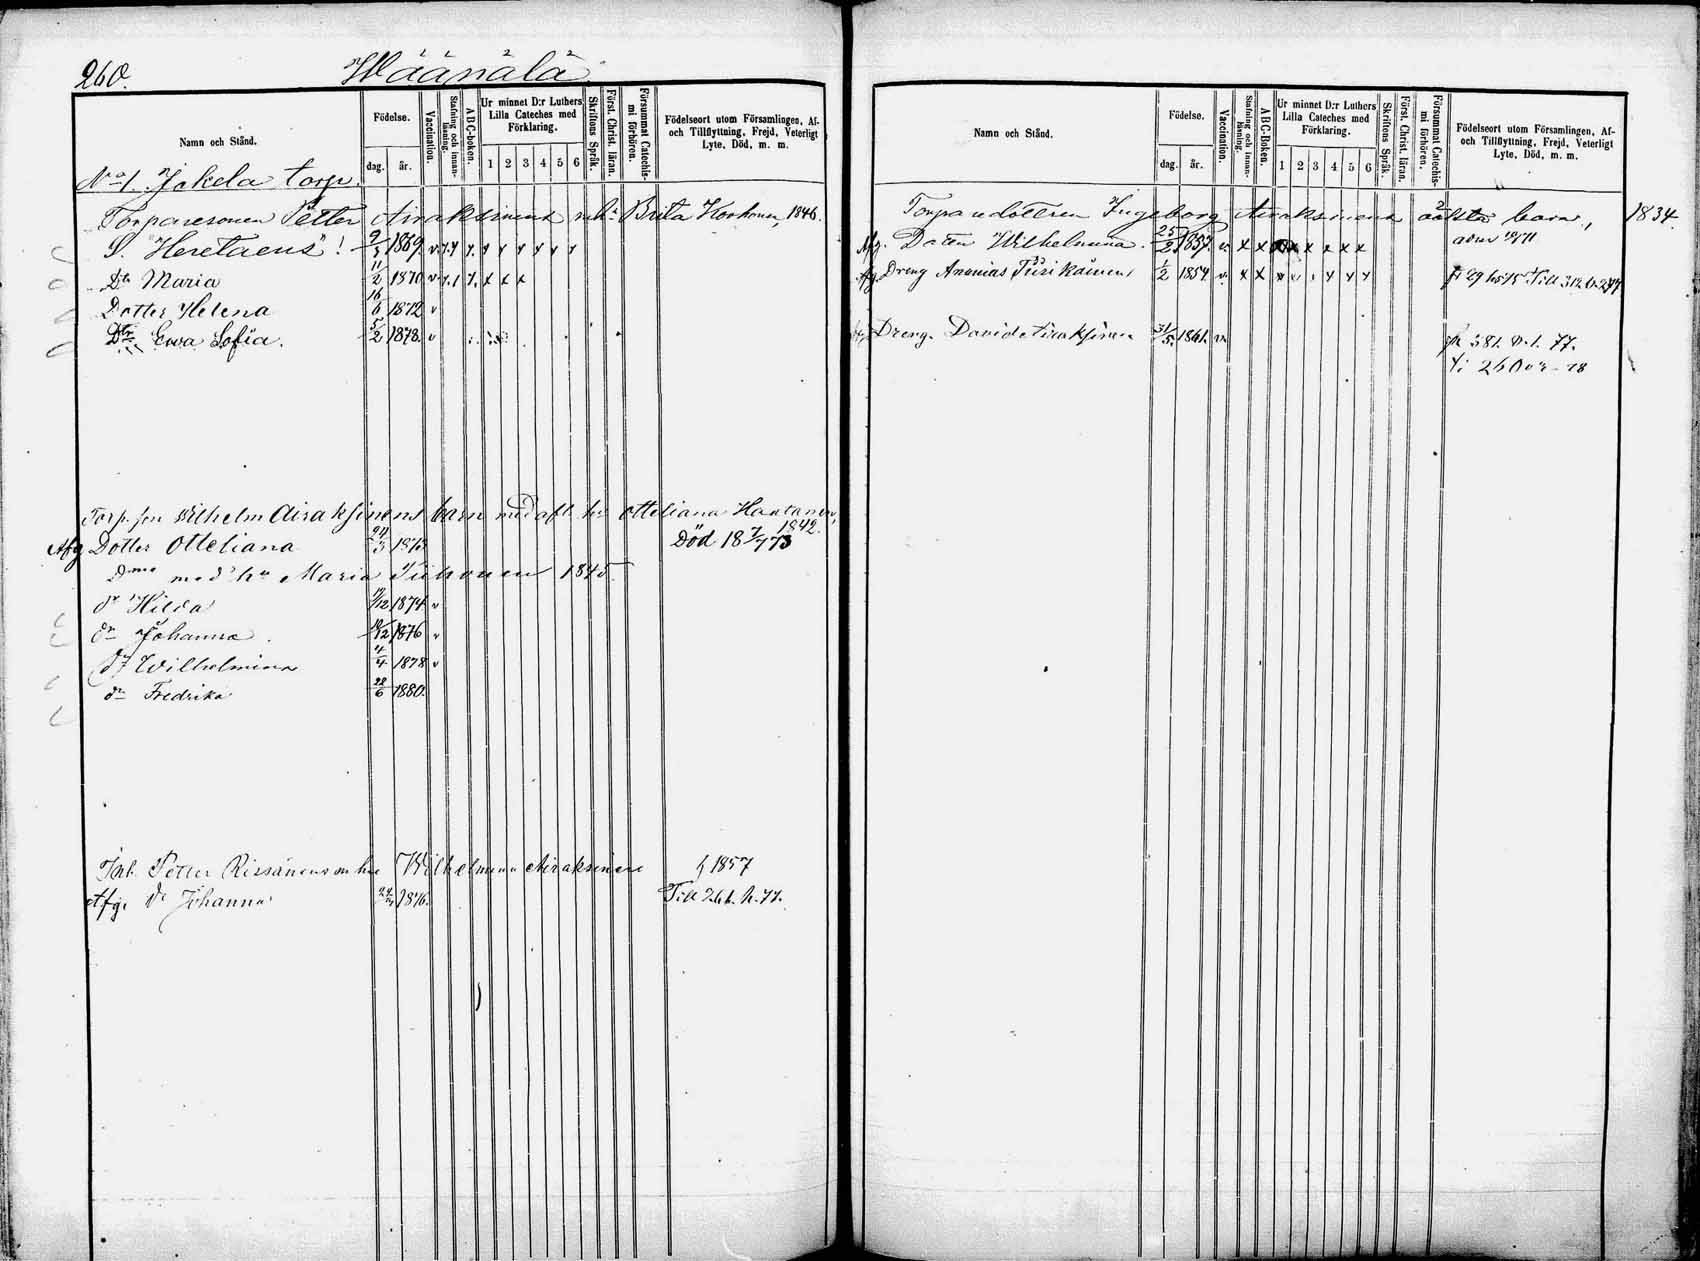 260.
Wäänälä
Namn och Stånd.
Födelse.
dag.
år.
Vaccination.
Stafning och innan-läsning.
A B C-boken.
Ur minnet D:r Luthers
Lilla Cateches med
Förklaring.
1 2 3 4 5 6
Skriftens Språk.
Först. Christ. läran.
Försummat Catechis-mi förhören.
Födelseort utom Församlingen, Af-
och Tillflyttning, Frejd, Veterligt
Lyte, Död, m. m.
No 1. Jokela torp.
Torparesonen Petter Airaksinens m h:u Brita Korhonen, 1846.
S. "Heretaens"! 9/5 1869. v.
Dtr Maria 11/2 1870 v. x x x
Dotter Helena 16/6 1872 v
Dtr Ewa Sofia. 5/2 1878. v
Torp. son Wilhelm Airaksinens barn med afl. h:u Otteliana Hantonen,
1842.
Afg Dotter Otteliana 24/3 1873 Död 18 7/7 73
D:mes med h:u Maria Tiihonen 1845
dr Hilda 17/12 1874 v
dr Johanna. 18/12 1876 v
dr Wilhelmina 4/4 1878 v
dr Fredrika 22/6 1880.
Inh. Petter Rissänens m hu Wilhelmina Airaksinen f 1857
Afg. dr Johanna 1876. Till 261. h. 77.
Namn och Stånd.
Födelse.
dag.
år.
Vaccination.
Stafning och innan-läsning.
A B C-Boken.
Ur minnet D:r Luthers
Lilla Cateches med
Förklaring.
1 2 3 4 5 6
Skriftens Språk.
Först. Christ. läran.
Försummat Catechis-mi förhören.
Födelseort utom Församlingen, Af-
och Tillflyttning, Frejd, Veterligt
Lyte, Död, m. m.
Torparedottren Ingeborg Airaksinens oäkta barn, 1834.
Afg. Dotter Wilhelmina. 25/2 1857. v. x x x x x x x
Afg. Dreng Ananias Tirikäinen 1/2 1854 v. x x
Dreng. David Airaksinen 31/5. 1861. v.
fr 381. n. 1. 77.